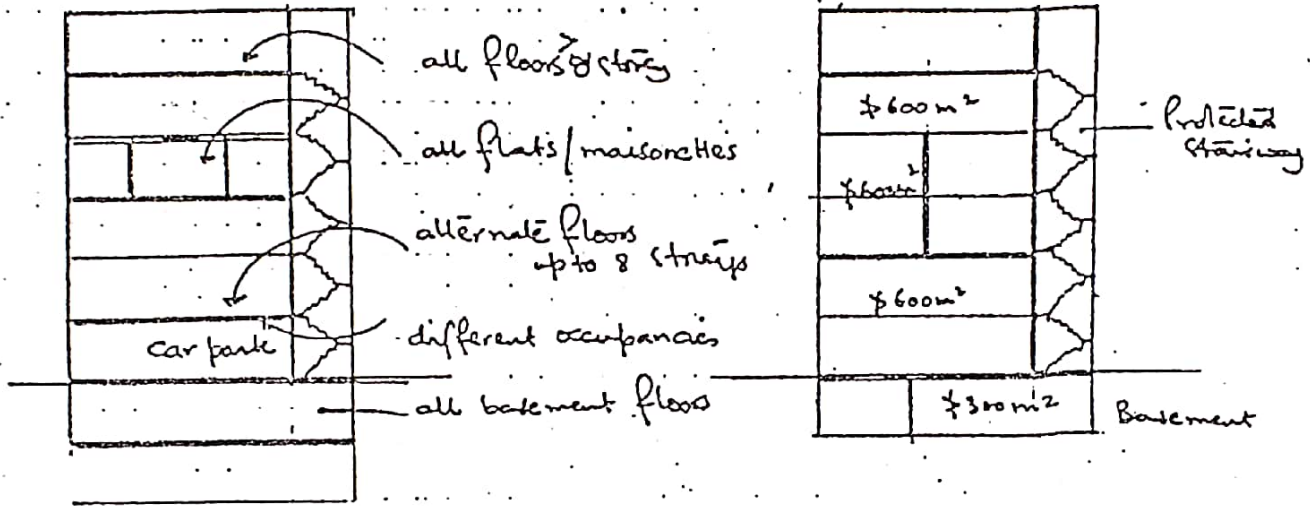 all floors > 8 storey
all flats/maisonettes
alternate floors
up to 8 storeys
car park
different occupancies
all basement floors
≯ 600m²
≯ 600m²
≯ 600m²
≯ 300m²
Protected
Stairway
Basement